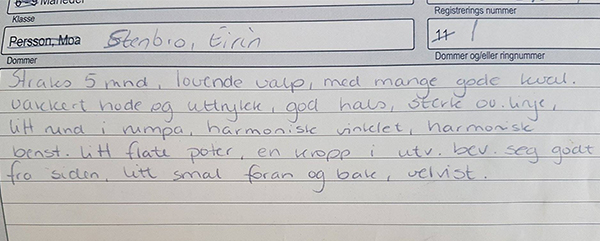 6-9 Måneder
Klasse
Registrerings nummer
Persson, Moa Stenbro, Eirin
11 1
Dommer
Dommer og/eller ringnummer
Straks 5 mnd, lovende valp, med mange gode kval.
vakkert hode og uttrykk, god hals, sterk ov. linje,
litt rund i rumpa, harmonisk vinklet, harmonisk
benst. litt flate poter, en kropp i utv. bev. seg godt
fra siden, litt smal foran og bak, velvist.